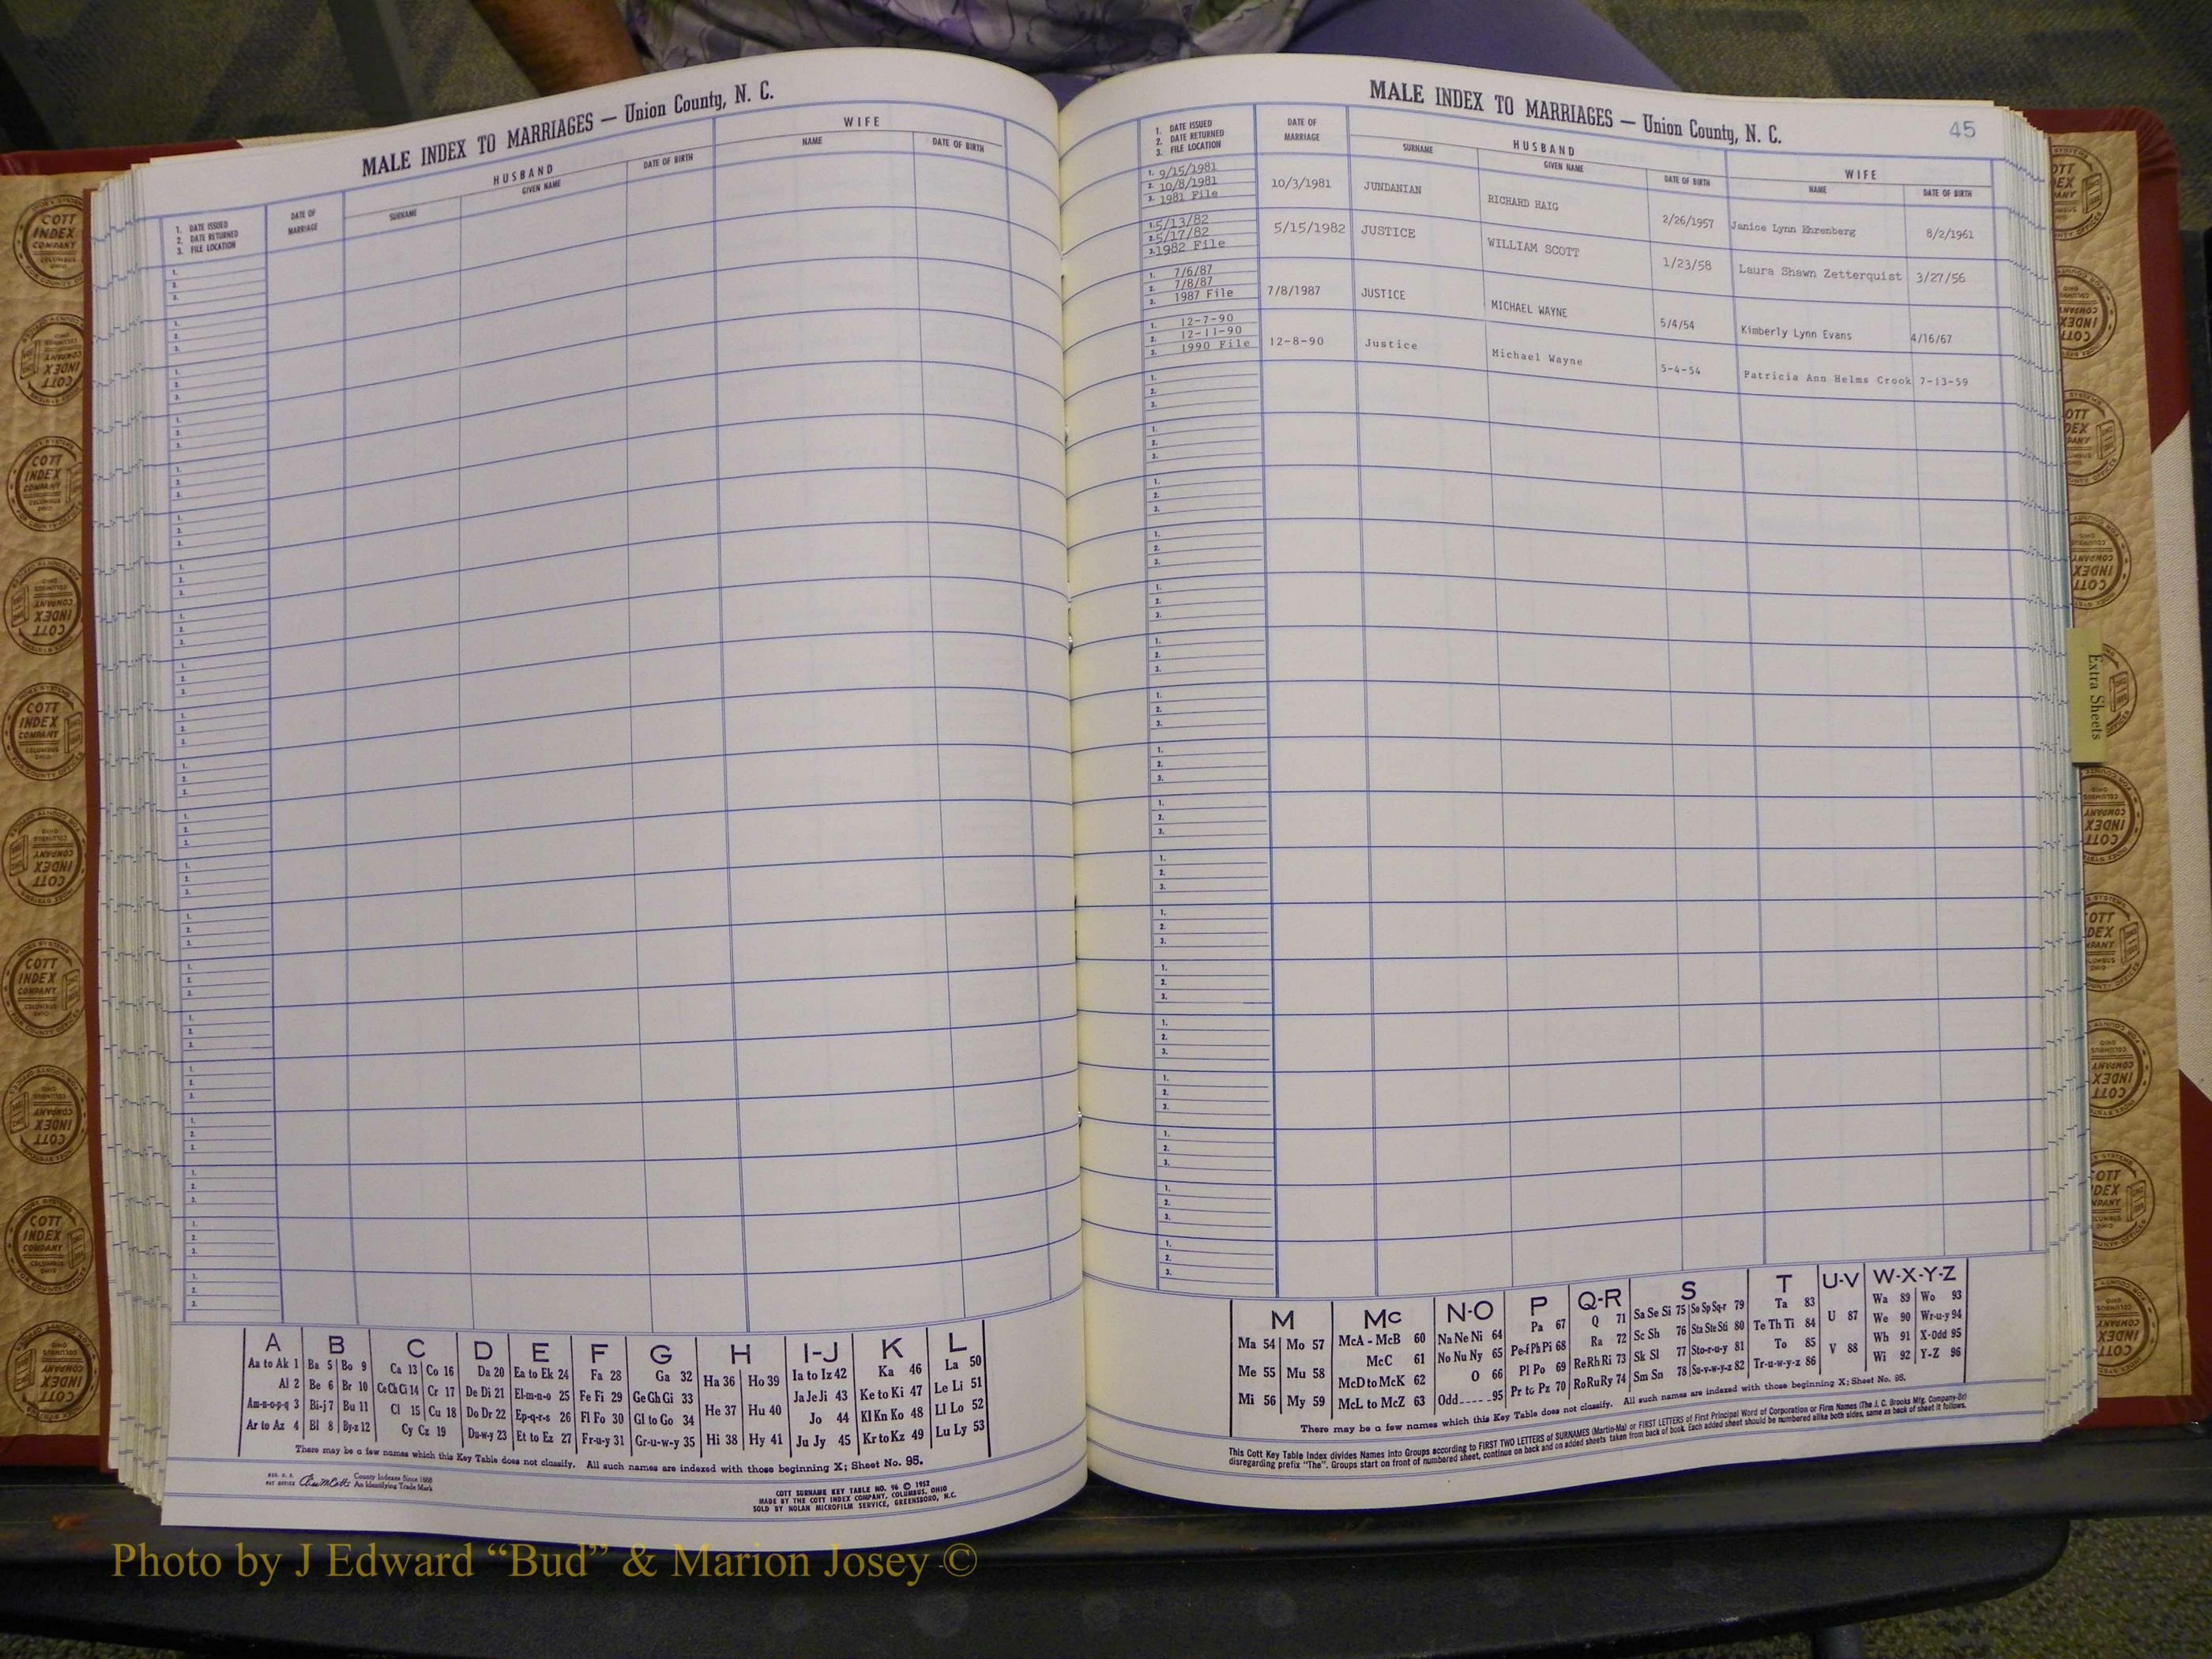 MALE INDEX TO MARRIAGES — Union County, N. C.
1. DATE ISSUED
2. DATE RETURNED
3. FILE LOCATION
DATE OF MARRIAGE
HUSBAND
SURNAME
GIVEN NAME
DATE OF BIRTH
WIFE
NAME
DATE OF BIRTH
A
Aa to Ak 1
Al 2
Am-n-o-p-q 3
Ar to Az 4
B
Ba 5 Bo 9
Be 6 Br 10
Bi-j 7 Bu 11
Bl 8 By-z 12
C
Ca 13 Co 16
Ce Ch Ci 14 Cr 17
Cl 15 Cu 18
Cy Cz 19
D
Da 20
De Di 21
Do Dr 22
Du-w-y 23
E
Ea to Ek 24
El-m-n-o 25
Ep-q-r-s 26
Et to Ez 27
F
Fa 28
Fe Fi 29
Fl Fo 30
Fr-u-y 31
G
Ga 32
Ge Gh Gi 33
Gl to Go 34
Gr-u-w-y 35
H
Ha 36 Ho 39
He 37 Hu 40
Hi 38 Hy 41
I-J
Ia to Iz 42
Ja Je Ji 43
Jo 44
Ju Jy 45
K
Ka 46
Ke to Ki 47
Kl Kn Ko 48
Kr to Kz 49
L
La 50
Le Li 51
Ll Lo 52
Lu Ly 53
There may be a few names which this Key Table does not classify. All such names are indexed with those beginning X; Sheet No. 95.
REG. U. S.
PAT OFFICE
County Indexes Since 1888
An Identifying Trade Mark
COTT SURNAME KEY TABLE NO. 96 © 1952
MADE BY THE COTT INDEX COMPANY, COLUMBUS, OHIO
SOLD BY NOLAN MICROFILM SERVICE, GREENSBORO, N.C.
MALE INDEX TO MARRIAGES — Union County, N. C.
45
1. DATE ISSUED
2. DATE RETURNED
3. FILE LOCATION
DATE OF MARRIAGE
HUSBAND
SURNAME
GIVEN NAME
DATE OF BIRTH
WIFE
NAME
DATE OF BIRTH
1. 9/15/1981
2. 10/8/1981
3. 1981 File
10/3/1981 JUNDANIAN RICHARD HAIG 2/26/1957 Janice Lynn Ehrenberg 8/2/1961
1. 5/13/82
2. 5/17/82
3. 1982 File
5/15/1982 JUSTICE WILLIAM SCOTT 1/23/58 Laura Shawn Zetterquist 3/27/56
1. 7/6/87
2. 7/8/87
3. 1987 File
7/8/1987 JUSTICE MICHAEL WAYNE 5/4/54 Kimberly Lynn Evans 4/16/67
1. 12-7-90
2. 12-11-90
3. 1990 File
12-8-90 Justice Michael Wayne 5-4-54 Patricia Ann Helms Crook 7-13-59
Extra Sheets
M
Ma 54 Mo 57
Me 55 Mu 58
Mi 56 My 59
Mc
McA - McB 60
McC 61
McD to McK 62
McL to McZ 63
N-O
Na Ne Ni 64
No Nu Ny 65
O 66
Odd 95
P
Pa 67
Pe-f Ph Pi 68
Pl Po 69
Pr to Pz 70
Q-R
Q 71
Ra 72
Re Rh Ri 73
Ro Ru Ry 74
S
Sa Se Si 75 So Sp Sq-r 79
Sc Sh 76 Sta Ste Sti 80
Sk Sl 77 Sto-r-u-y 81
Sm Sn 78 Su-v-w-y-z 82
T
Ta 83
Te Th Ti 84
To 85
Tr-u-w-y-z 86
U-V
U 87
V 88
W-X-Y-Z
Wa 89 Wo 93
We 90 Wr-u-y 94
Wh 91 X-Odd 95
Wi 92 Y-Z 96
There may be a few names which this Key Table does not classify. All such names are indexed with those beginning X; Sheet No. 95.
This Cott Key Table Index divides Names into Groups according to FIRST TWO LETTERS of SURNAMES (Martin-Ma) or FIRST LETTERS of First Principal Word of Corporation or Firm Names (The J. C. Brooks Mfg. Company-Br)
disregarding prefix "The". Groups start on front of numbered sheet, continue on back and on added sheets taken from back of book. Each added sheet should be numbered alike both sides, same as back of sheet it follows.
COTT INDEX COMPANY
COLUMBUS OHIO
Photo by J Edward “Bud” & Marion Josey ©